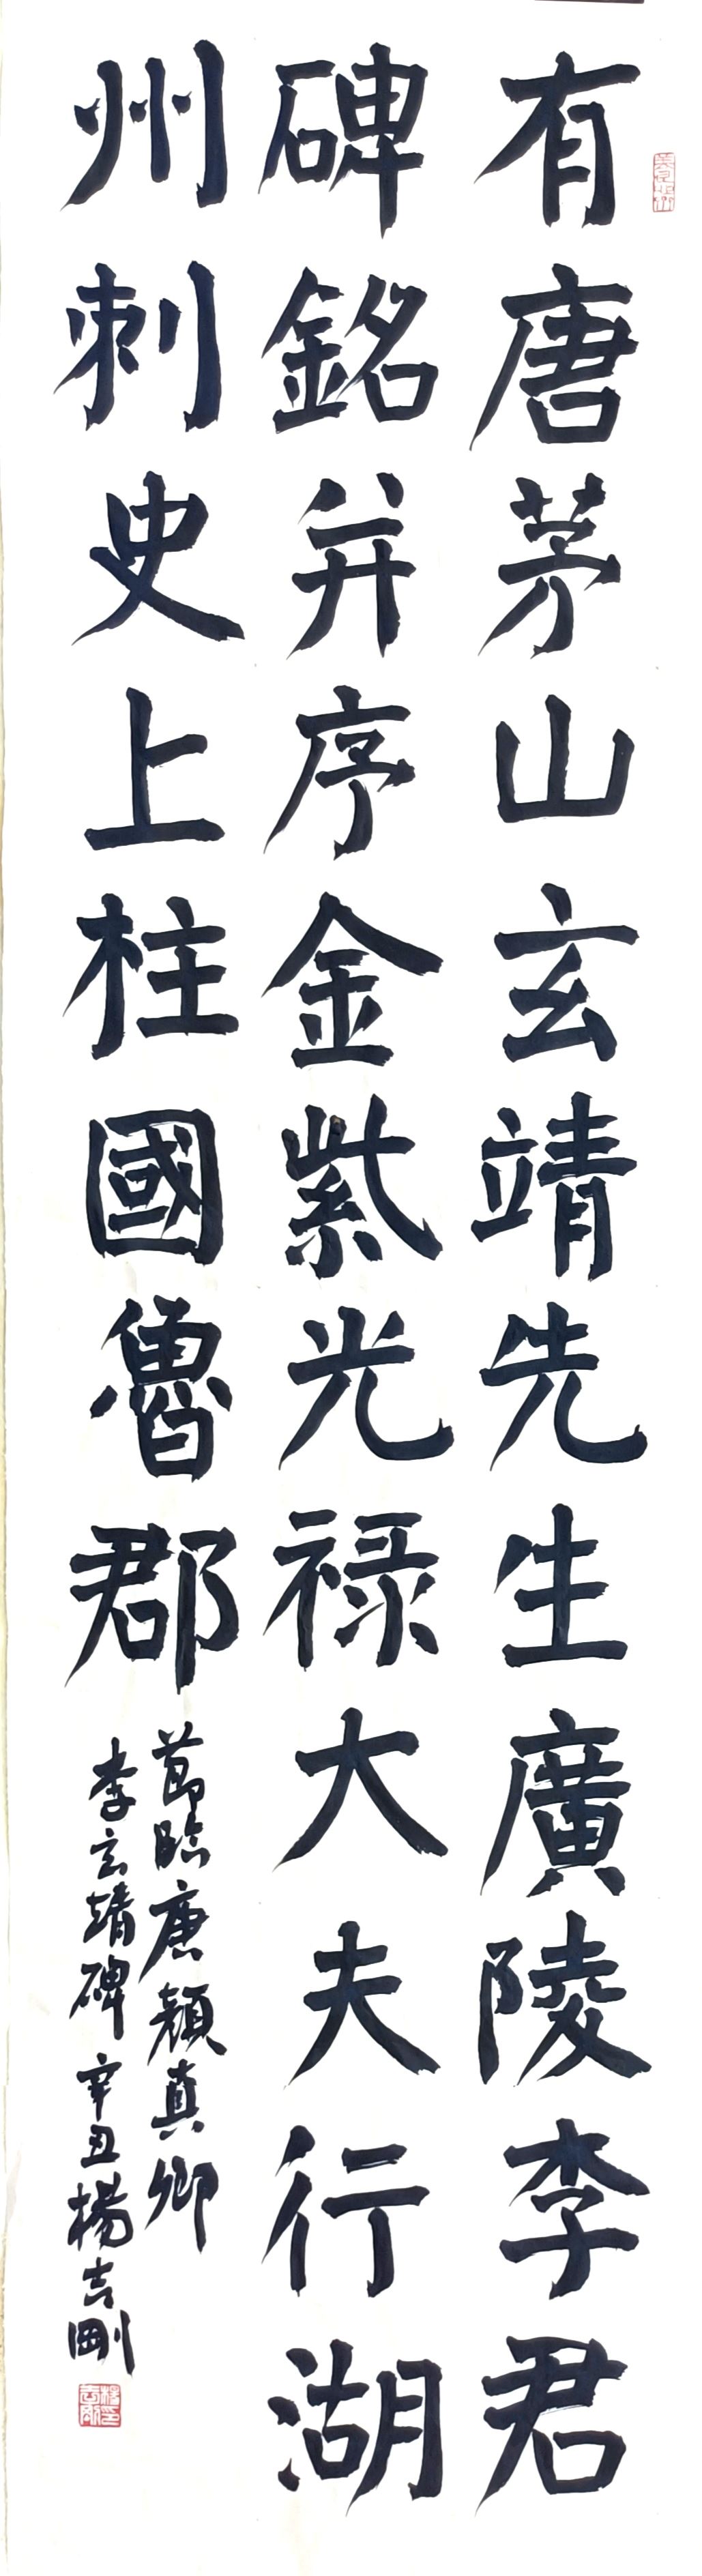 有唐茅山玄靖先生廣陵李君
碑銘并序金紫光禄大夫行湖
州刺史上柱國魯郡
節臨唐顏真卿
李玄靖碑辛丑楊吉剛